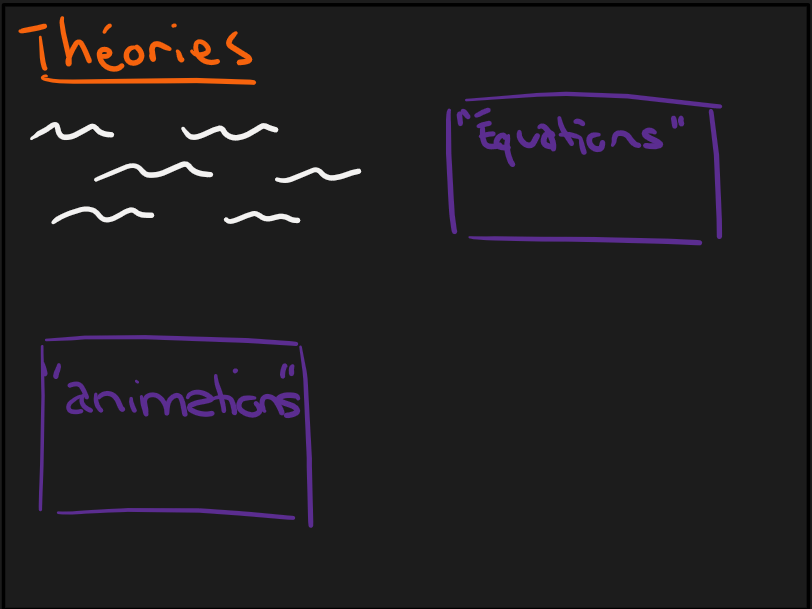 Théories
"Équations"
"animations"